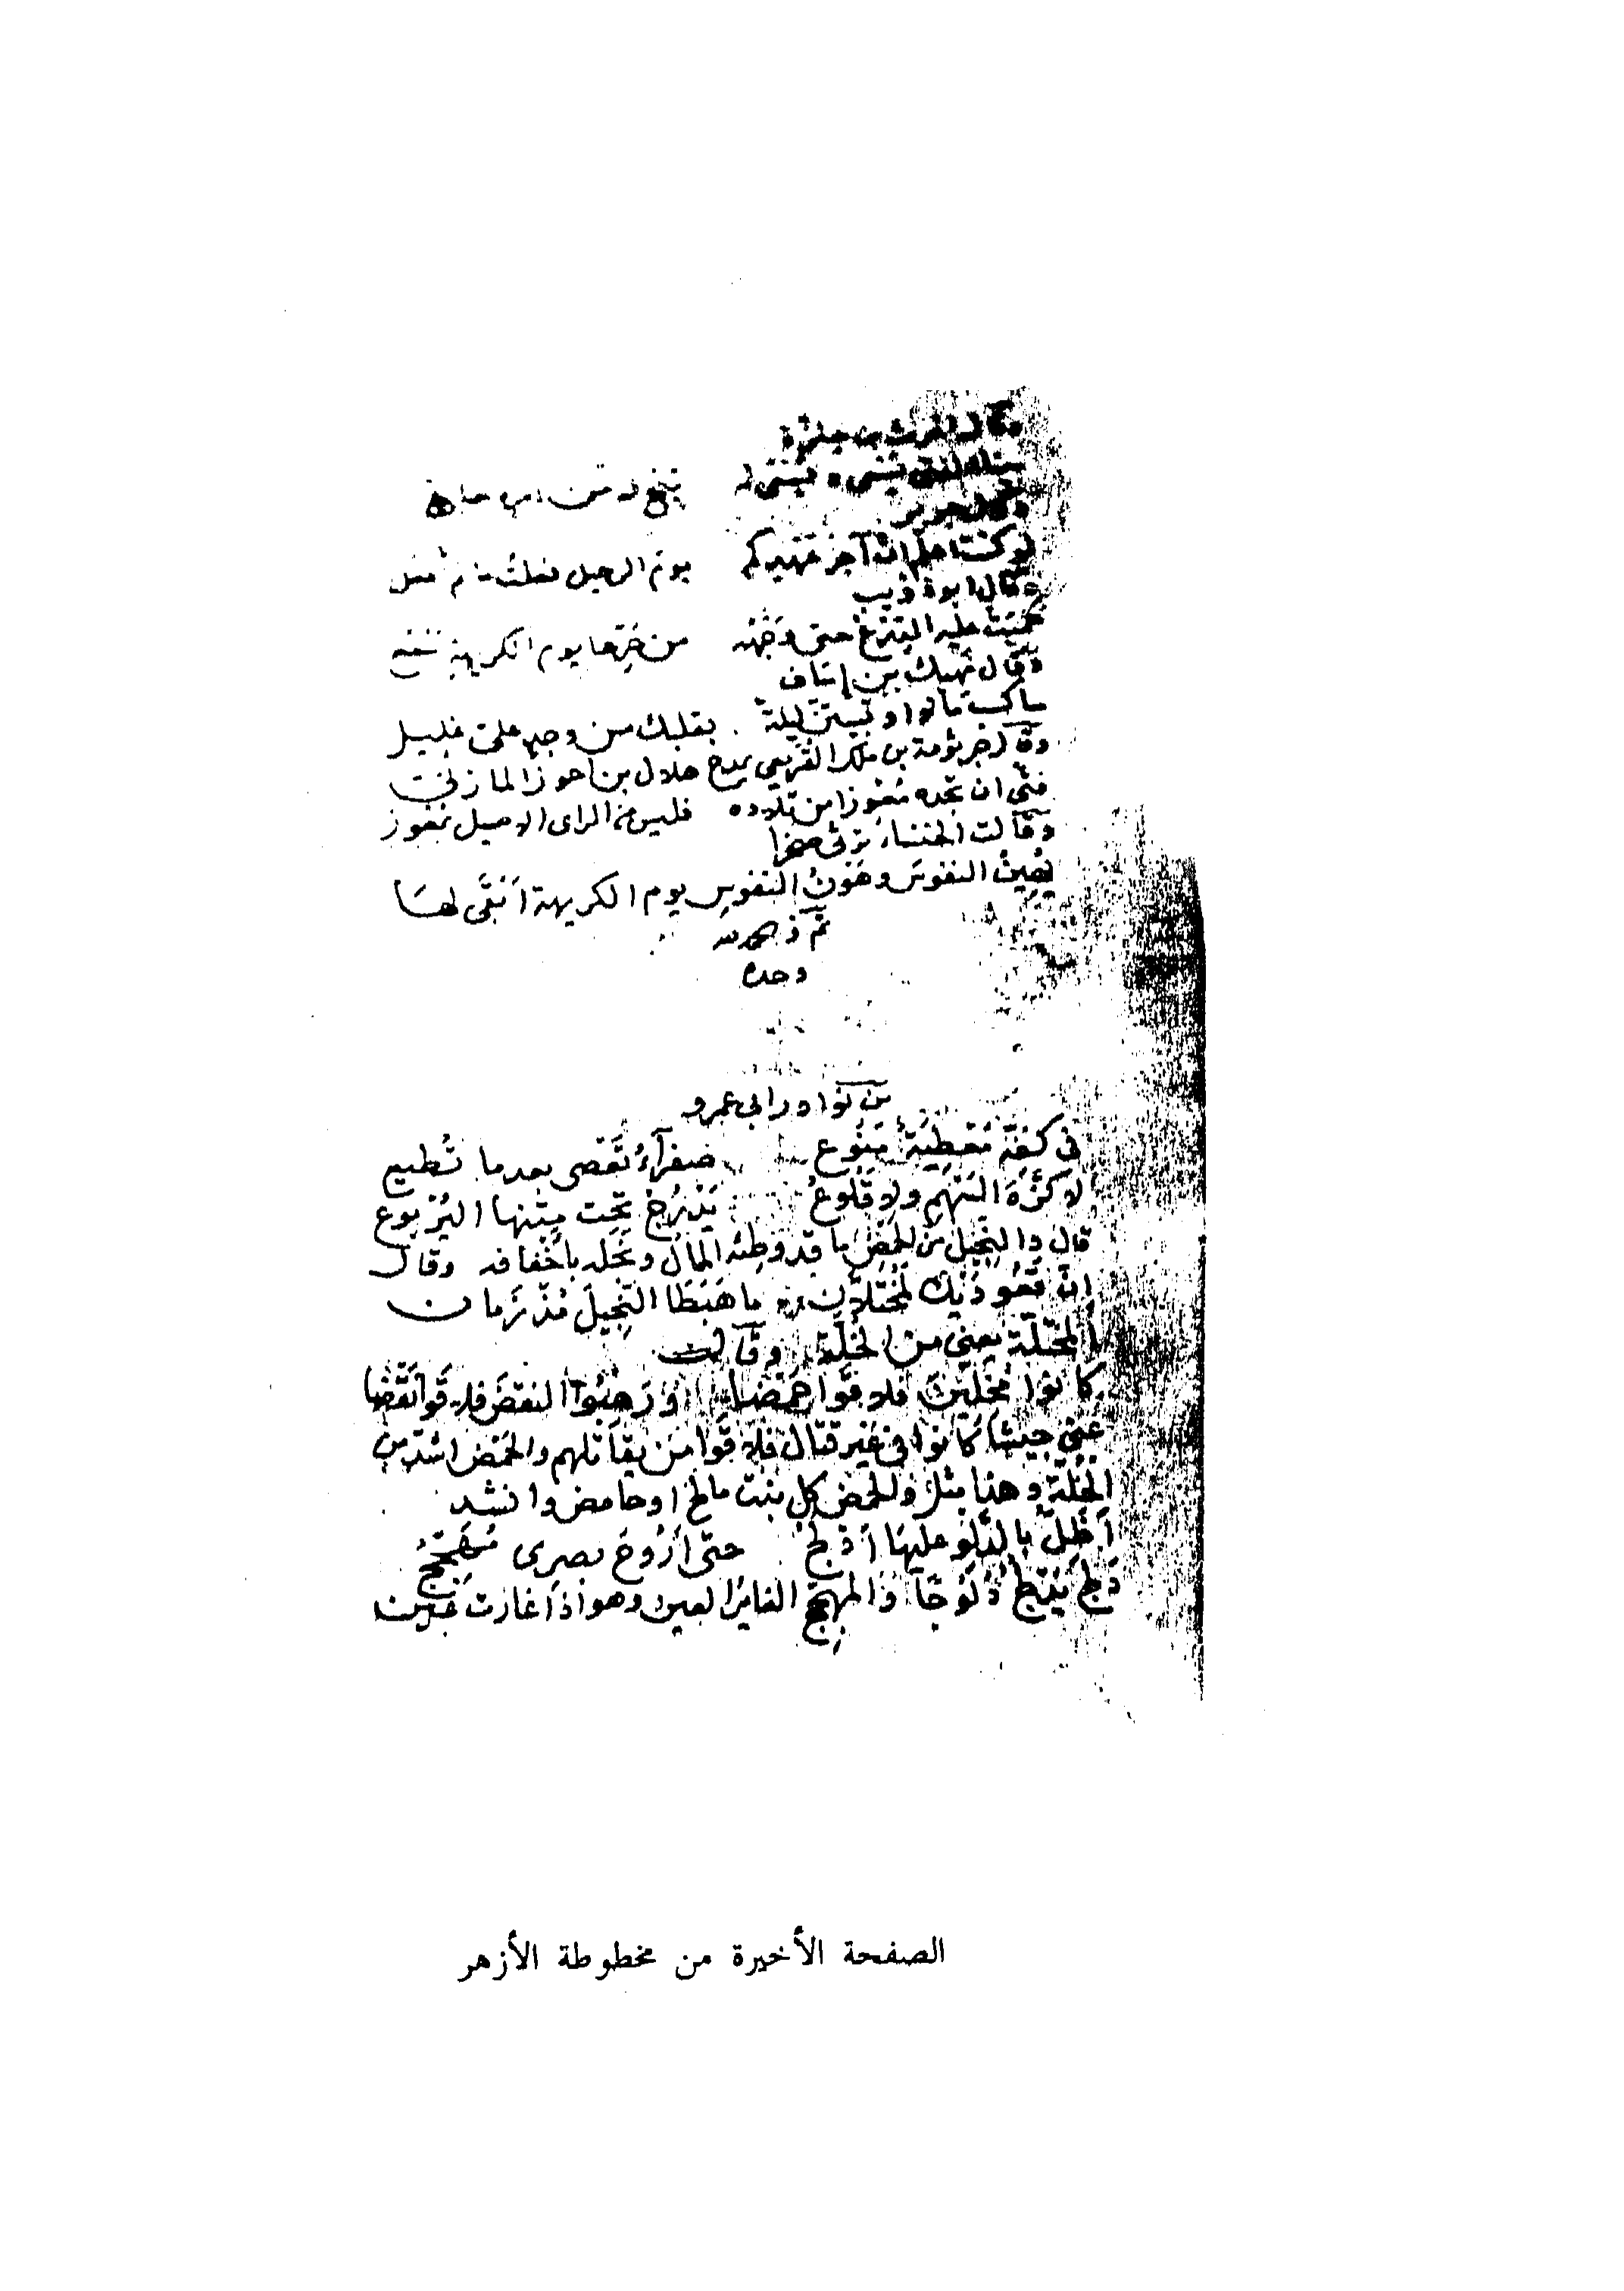 وقال الحرث بن حلزة
بينا الفتى يسعى ويسعى له
وقال جرير
لو كنت اعلم ان آخر عهدكم يوم الرحيل فعلت ما لم أفعل
وقال ابو ذؤيب
حميت عليه الدرع حتى وجهه من حرها يوم الكريهة اسفع
وقال نهيك بن إساف
سأكسب مالا او تبيتن ليلة بقلبك من وجد علي غليل
وقال جر ثومة بن مالك القريعي يمدح هلال بن احوز المازني
فتى ان تجده معوزا من تلاده فليس من الراى الاصيل بمعوز
وقالت الخنساء ترثى صخرا
نهين النفوس وهون النفوس يوم الكريهة أبقى لها
تم والحمد لله
وحده
من نوادر ابى عمرو
فى كفه معطية منوع صفرآء تعصى بعدما تطيع
لا كزة السهم ولا قلوع يدرج تحت متنها اليربوع
قال والنجيل من الحمض ما قد وطئه المال ونجله باخفافه وقال
ان قعوديك لمختلان ما هبطا النجيل مذ زمان
المختلة يعنى من الخلة وقالت
كانوا مخلين فلاقوا حمضا ورهبوا النقض فلاقوا نقضا
عنى جيشا كانوا فى غير قتال فلاقوا من يقاتلهم والحمض اشد من
الخلة وهذا مثل والحمض كل نبت مالح او حامض وانشد
اظل بالدلو عليها أدلج حتى أروح بصرى مهجج
دلج يدلج دلوجا والمهجج الغاير العين وهو اذا غارت عينه
الصفحة الأخيرة من مخطوطة الأزهر